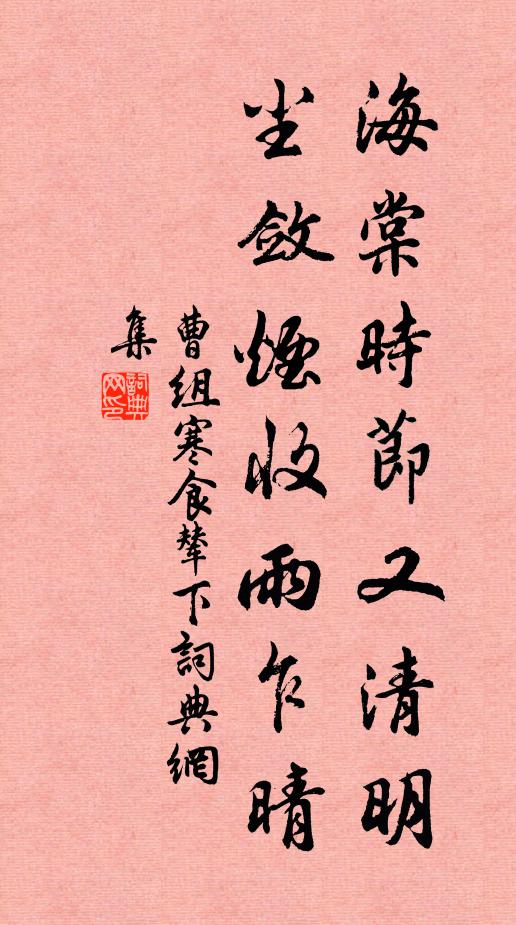 海棠時節又清明
尘斂煙收雨乍晴
曹組寒食輦下詞典網
集
詞典
网印